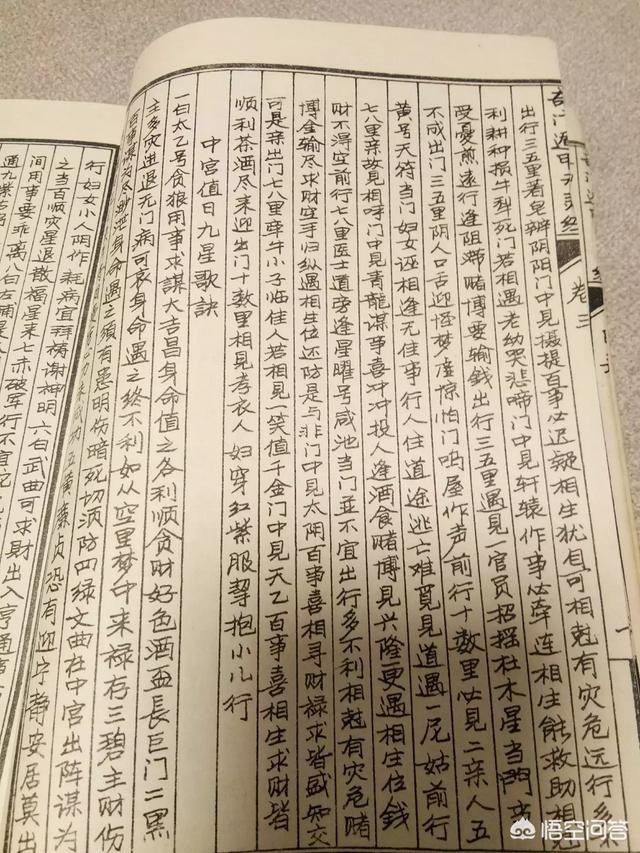 奇门遁甲
卷三
出行三五里著皂辨阴阳门中見摄提百事必迟疑相生犹自可相尅有灾危远行多不
利耕种损牛犁死门若相遇老幼哭悲啼门中見轩辕作事必牵连相生能救助相尅
受憂煎遠行逢阻滞赌博要输錢出行三五里遇見一官员招摇杜木星当門事
不成出门三五里阴人口舌迎怪梦虚惊怕门鸣屋作声前行十数里必見二亲人五
黄号天符当门妇女诬相逢无佳事行人住道途逃亡难覓見道遇一尼姑前行
七八里亲故見相呼门中見青龍谋事喜冲冲投人逢酒食赌博見兴隆更遇相生位錢
财不得空前行七八里医士道旁逢星曜号咸池当门並不宜出行多不利相尅有灾危赌
博金输尽求财空手归纵遇相生位还防是与非门中見太阴百事喜相寻财禄求皆盛知交
可是亲出门七八里牵牛小子临佳人若相見一笑值千金门中見天乙百事喜相生求财皆
顺利茶酒尽来迎出门十数里相見孝衣人妇穿红紫服挈抱小儿行
中宫值日九星歌訣
一白太乙号貪狼用事求謀大吉昌身命值之各利顺貪财好色酒血長巨门二黑
主多灾进退无门病可哀身命遇之终不利如从空里梦中来禄存三碧主财伤
身命遇之须有患明伤暗死切須防四绿文曲在中宫出阵谋为
五黄廉贞恐有迎宁静安居莫出
行妇女小人阴作耗病宜拜祷谢神明六白武曲可求財出入亨通
之当百顺灾星退散福星来七赤破军行不宜
间用事要乖离八白左辅
通九紫右弼
悟空问答